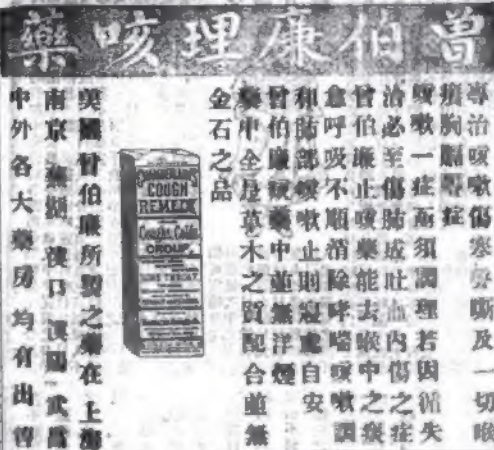 曾伯廉理咳藥
專治咳嗽傷寒嘶及一切喉
胸膈症
咳嗽一症面須調理若因循失
治必至傷肺成吐血內傷之症
曾伯廉止咳藥能去喉中之痰
愈呼吸不順消除哮喘咳嗽調
和肺部咳嗽止則寢處自安
曾伯廉咳藥中並無洋煙
藥中全是草木之質配合並無
金石之品
CHAMBERLAIN'S
COUGH
REMEDY
Coughs, Colds,
CROUP,
SORE THROAT
美國曾伯廉所製之藥在上海
南京 蕪湖 漢口 漢陽 武昌
中外各大藥房均有出售